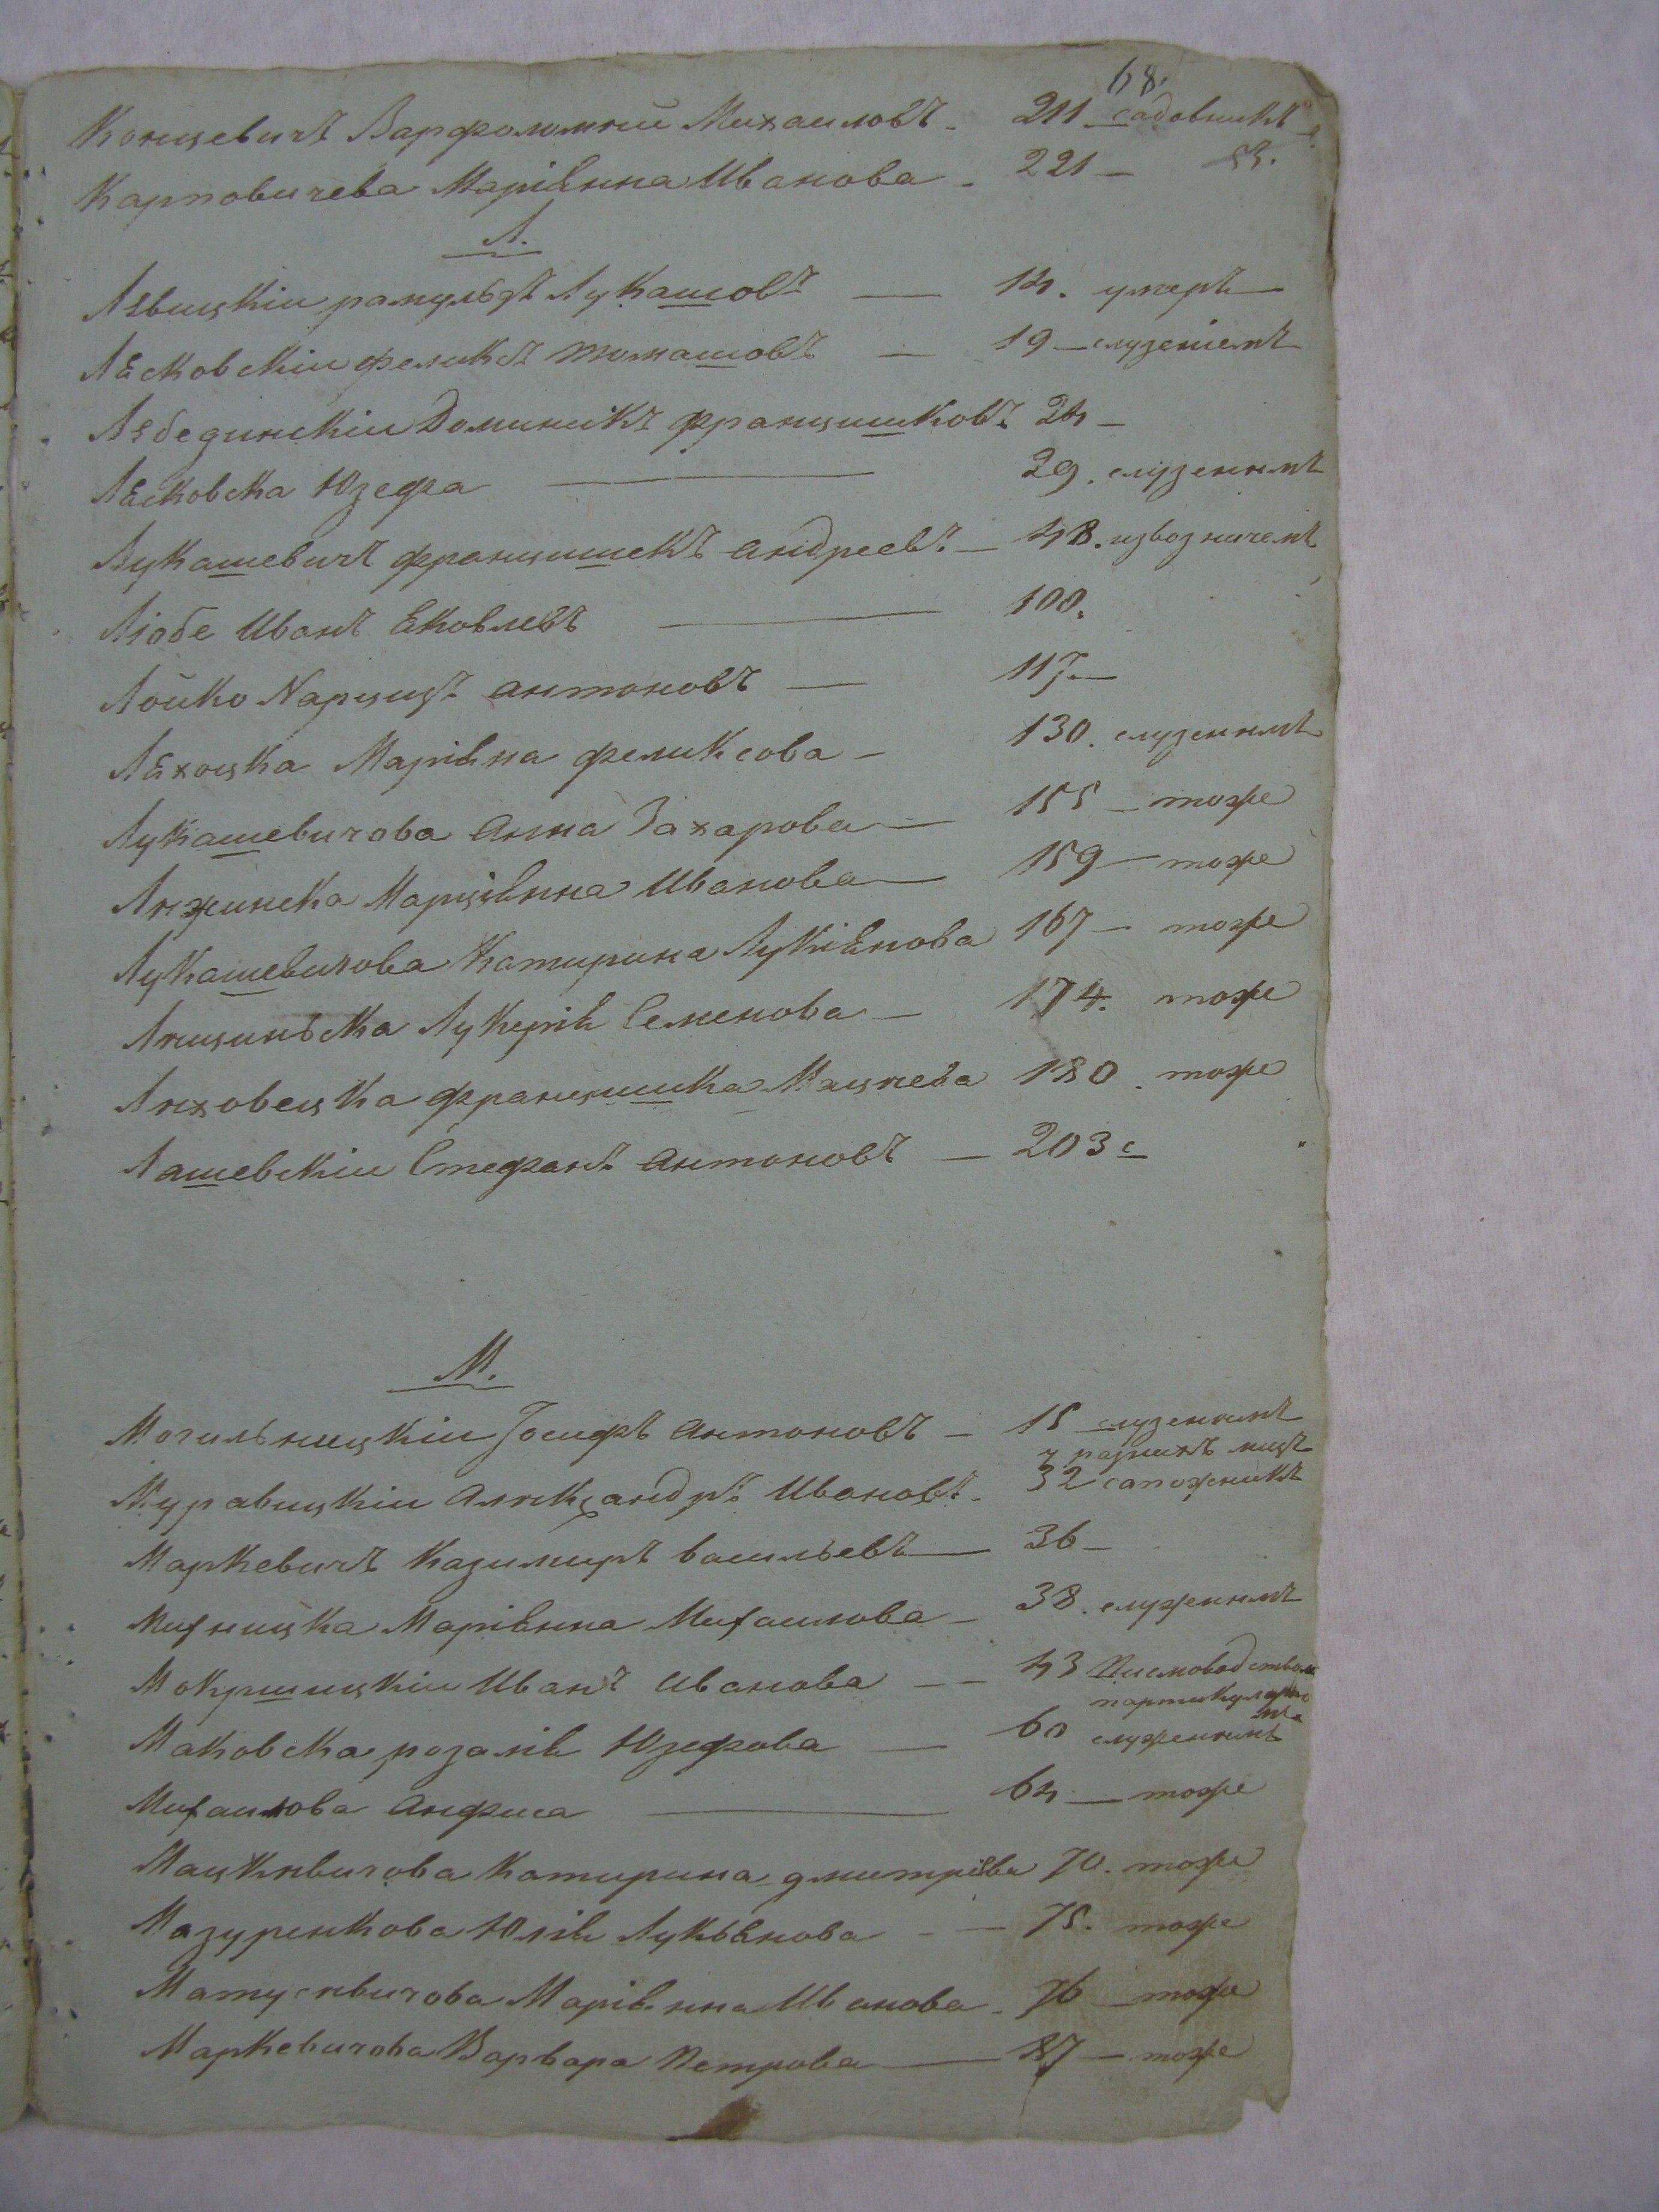 68.
Концевичъ Варфоломей Михаиловъ - 211 садовникъ
Карповичева Маріѣнна Иванова - 221 - 53.
Л.
Лѣвицкіи рамульдъ Лукашовъ — 14. умеръ —
Лѣсковскіи феликсъ томашовъ — 19 — служеніемъ
Лѣбединскіи Доминикъ францишковъ 24 —
Лѣсковска Юзефа — 29. служеніемъ
Лукашевичъ францишекъ андреевъ — 48. извозничемъ
Любе Иванъ Ековлевъ — 100.
Лойко Nарцизъ антоновъ — 117. —
Лѣхоцка Маріѣна феликсова — 130. служеніемъ
Лукашевичова анна Захарова — 155 — тоже
Лнжинска Марціѣнна Иванова — 159 — тоже
Лукашевичова Катирина Лукіѣнова 167 — тоже
Лещинска Лукеріѣ Семенова — 174. тоже
Лнховецка францишка Мацнева 180. тоже
Лашевскіи Стефанъ антоновъ — 203
М.
Могильницкіи Іосифъ антоновъ — 15 служеніемъ
у разныхъ лицъ
Муравицкіи Александръ Ивановъ - 32 сапожникъ
Маркевичъ Казимиръ васильевъ — 36 —
Михницка Маріѣнна Михаилова — 38. служеніемъ
Мокршицкіи Иванъ Иванова — 43 Писмоводствомъ
партикулярнымъ
Маковска розаліѣ Юзефова — 60 служеніемъ
Михаилова анфиса — 64 — тоже
Мацкевичова Катирина дмитріѣва 70. тоже
Мазуренкова Юліѣ Лукьѣнова — 75. тоже
Матусевичова Маріѣнна Иванова - 76 — тоже
Маркевичова Варвара Петрова — 87 — тоже